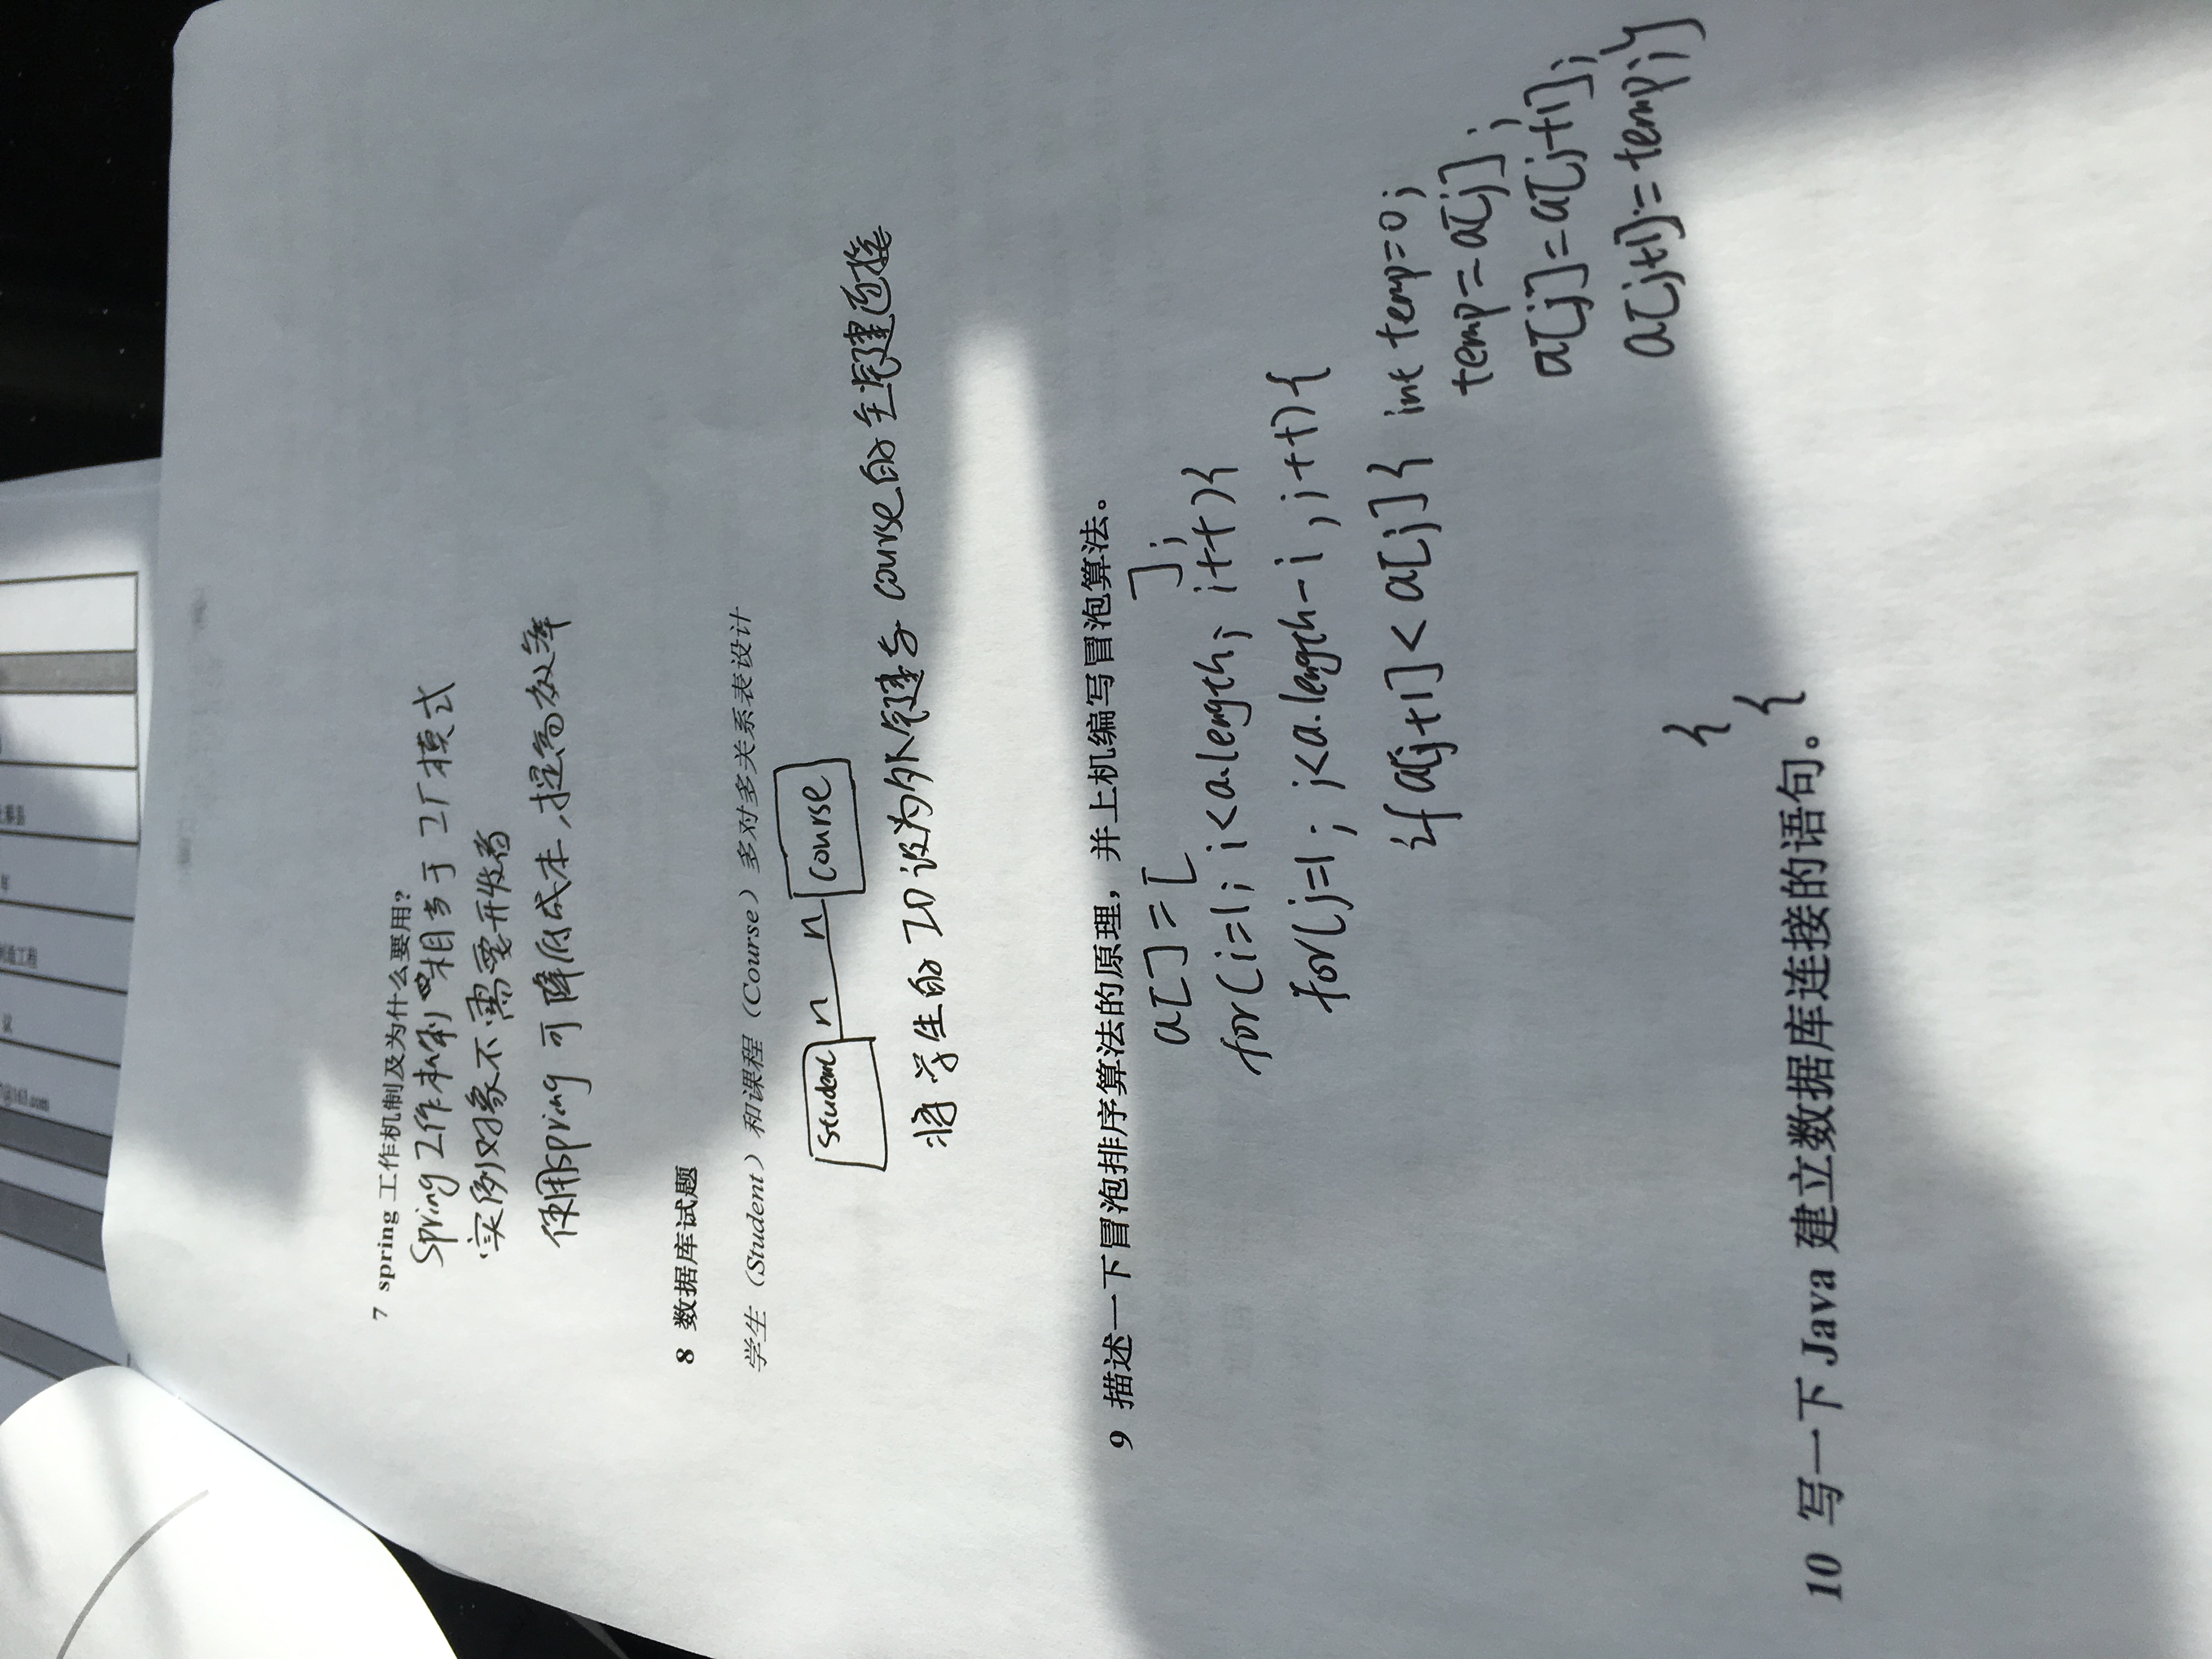 7 spring 工作机制及为什么要用?
Spring工作机制 相当于工厂模式
实例对象不需要开发者
使用spring 可降低成本,提高效率
8 数据库试题
学生（Student）和课程（Course）多对多关系表设计
Student n n Course
将学生的ID设为外键与course的主键连接
9 描述一下冒泡排序算法的原理，并上机编写冒泡算法。
a[]=[ ];
for(i=1; i<a.length; i++){
for(j=1; j<a.length-i, j++){
if a[j+1]<a[j]{ int temp=0;
temp=a[j];
a[j]=a[j+1];
a[j+1]=temp;}
{
{
10 写一下 Java 建立数据库连接的语句。